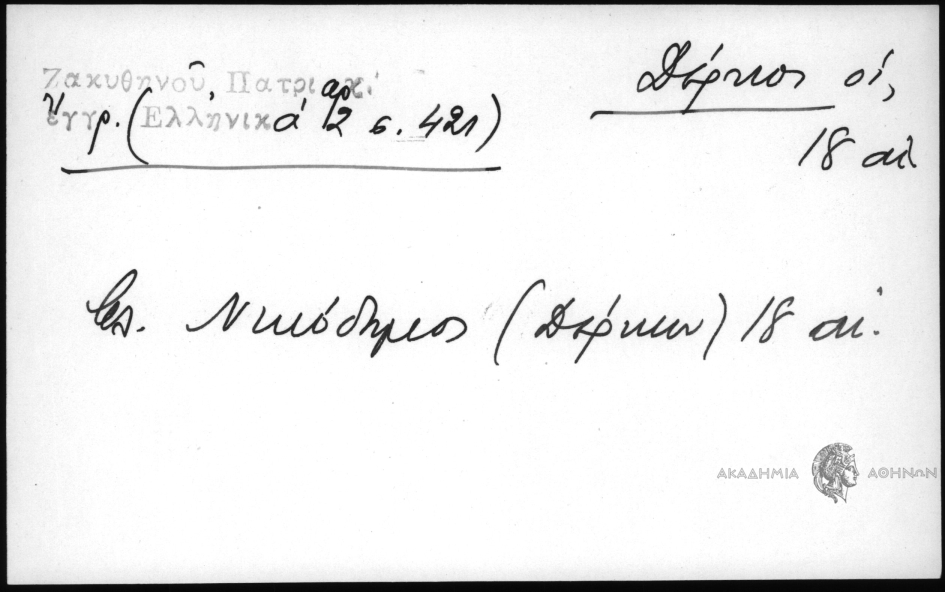 Ζακυθηνοῦ, Πατριαρχ.
ἔγγρ. (Ἑλληνικά 2 σ. 421)
Δέρκοι οἱ,
18 αἰ
Ἐπ. Νικόδημος (Δέρκων) 18 αἰ.
ΑΚΑΔΗΜΙΑ ΑΘΗΝΩΝ